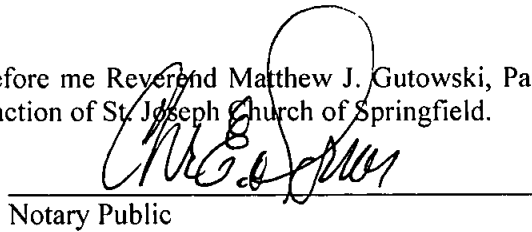 efore me Reverend Matthew J. Gutowski, Pa
action of St. Joseph Church of Springfield.
Notary Public